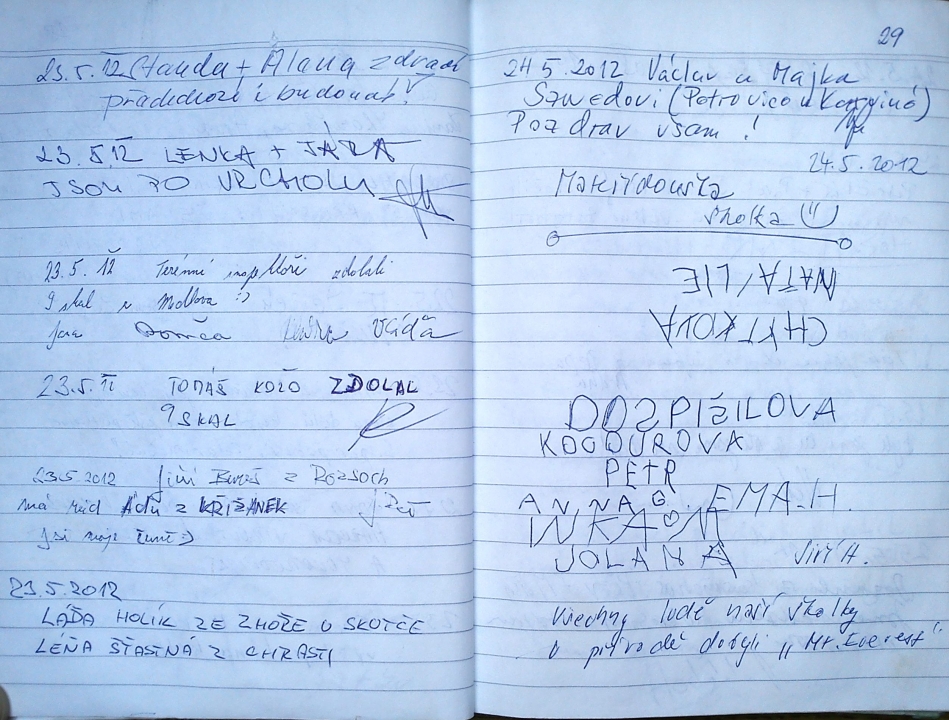 23.5.12 Standa + Alena zdraví
předchozí i budoucí!
23.5.12 LENKA + JÁRA
JSOU PO VRCHOLU
23.5.12 Terénní zdolali
9 skal z
Jana Domča Vláďa
23.5.12 TOMÁŠ ZDOLAL
9 SKAL
23.5.2012 Jiří z Rozsoch
má rád z KŘIŽÁNEK
Jsi moje :)
23.5.2012
LÁĎA HOLÍK ZE ZHOŘE U SKUTČE
LÉŇA ŠŤASTNÁ Z CHRASTI
29
24.5.2012 Václav a Majka
Szwedovi (Petrovice u Karviné)
Pozdrav všem!
24.5.2012
školka
NATÁLIE
DOSPIŠILOVA
KOCOUROVA
PETR
ANNA G. EMA H.
JOLANA Jiří H.
Všechny lodě naší školky
v přírodě dobyli „Mt. Everest".